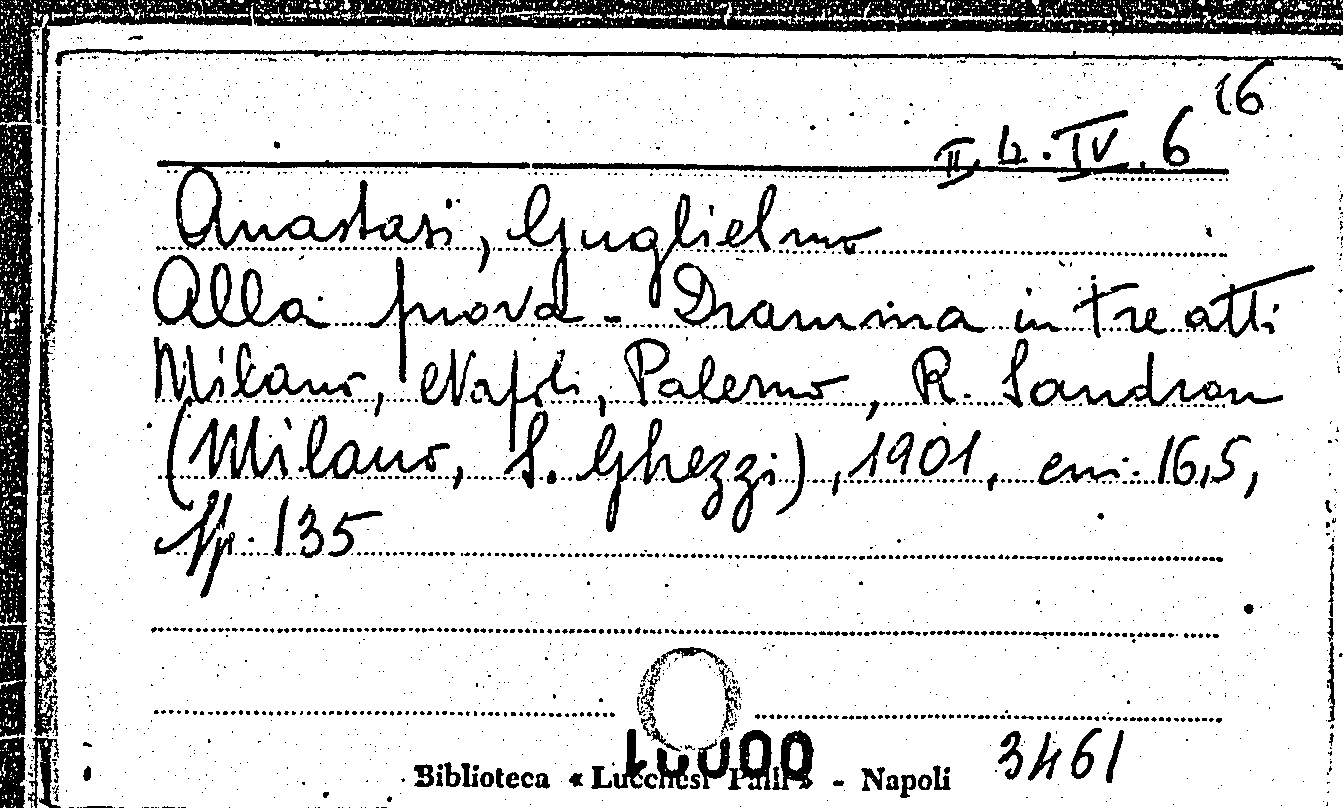 II. L2. IV. 6 16
Anastasi, Guglielmo
Alla prova - Dramma in tre atti
Milano, Napoli, Palermo, R. Sandron
(Milano, S. Ghezzi), 1901, cm. 16,5,
pp. 135
10000
Biblioteca « Lucchesi Palli » - Napoli 3461